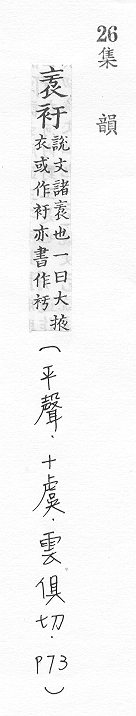 26集韻
袬衧說文諸袬也一曰大掖衣或作衧亦書作𧘝
(平聲.十虞.雲俱切.P73)